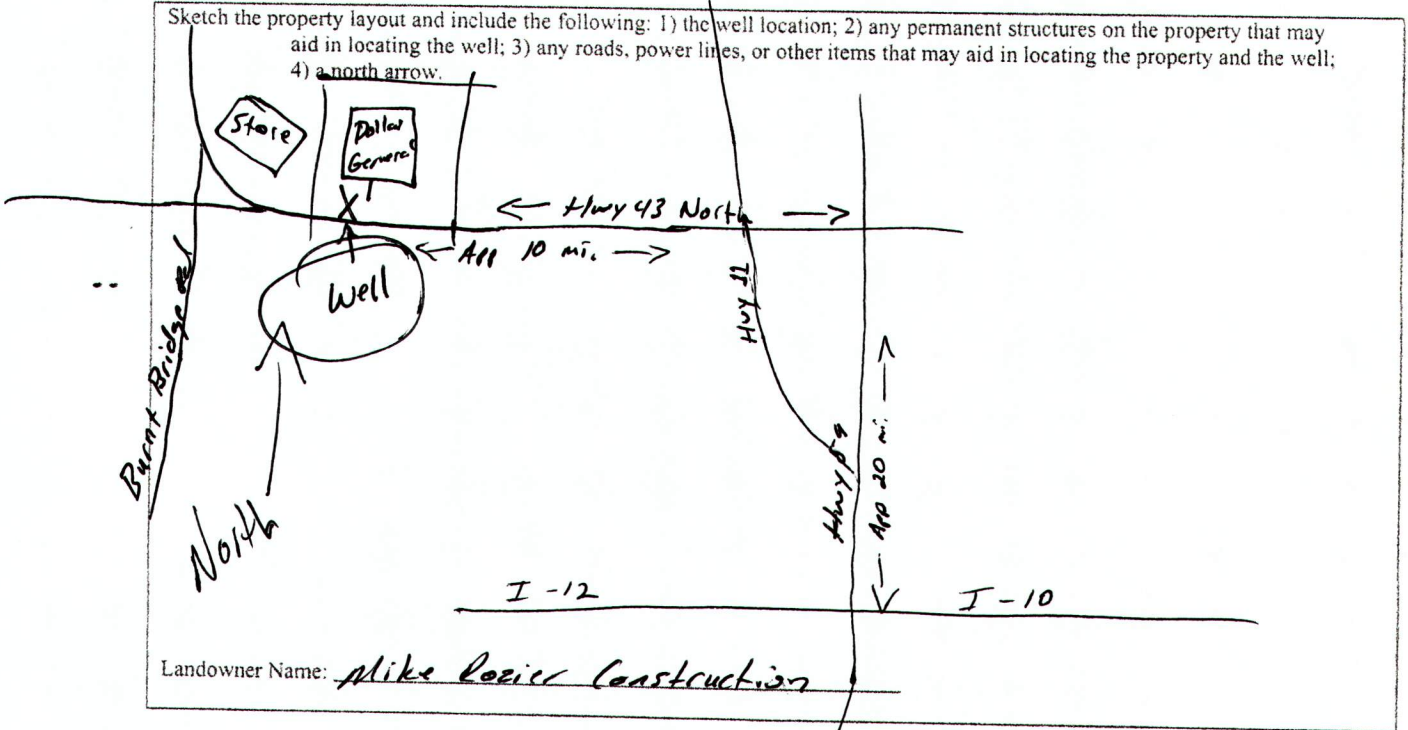 Sketch the property layout and include the following: 1) the well location; 2) any permanent structures on the property that may
aid in locating the well; 3) any roads, power lines, or other items that may aid in locating the property and the well;
4) a north arrow.
Store
Dollar
General
X
← Hwy 43 North →
← App 10 mi. →
Well
Hwy 11
Burnt Bridge Rd
North
Hwy 59
← App 20 mi. →
I-12
I-10
Landowner Name: Mike Rozier Construction